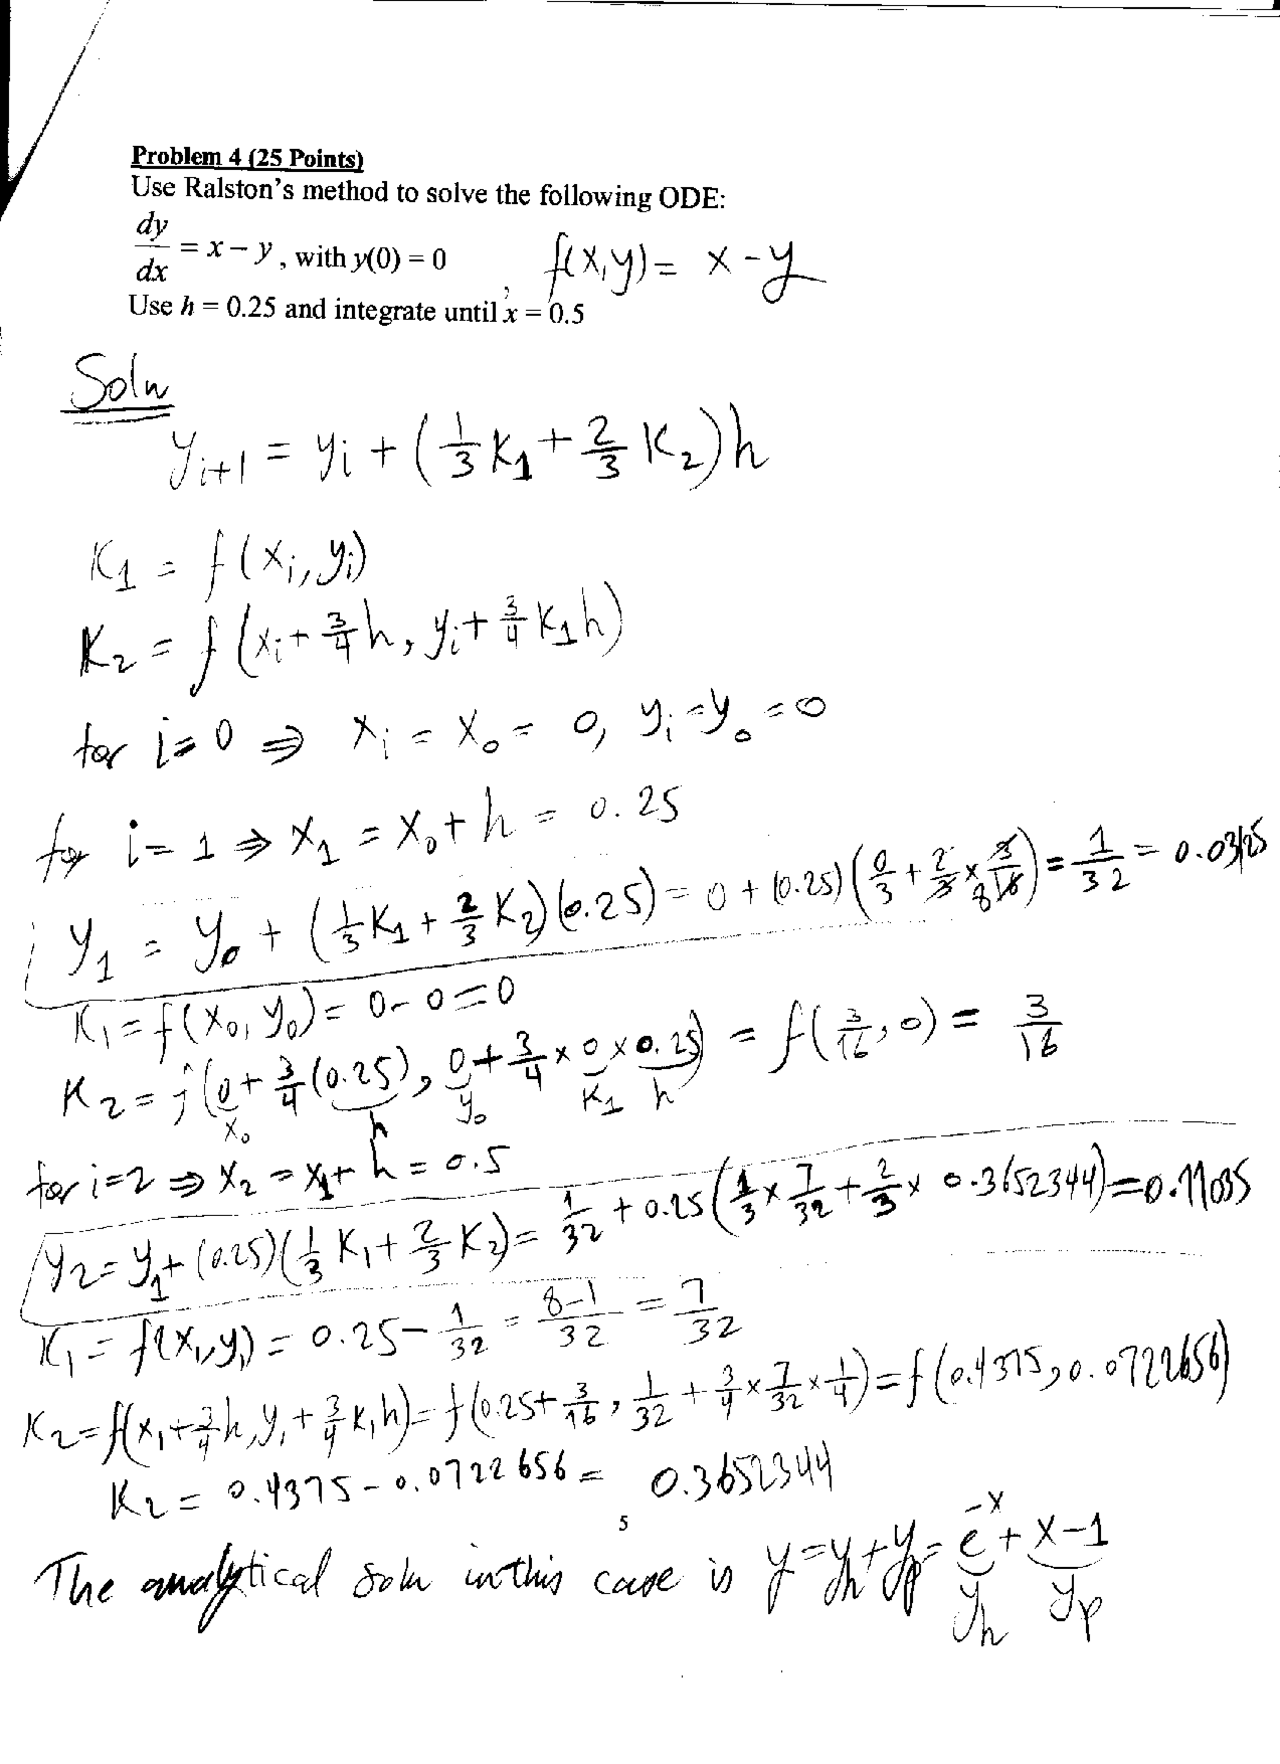 Problem 4 (25 Points)
Use Ralston's method to solve the following ODE:
dy/dx = x − y, with y(0) = 0 f(x,y) = x - y
Use h = 0.25 and integrate until x = 0.5
Soln
y_{i+1} = y_i + (1/3 K_1 + 2/3 K_2)h
K_1 = f(x_i, y_i)
K_2 = f(x_i + 3/4 h, y_i + 3/4 K_1 h)
for i=0 ⇒ x_i = x_0 = 0, y_i = y_0 = 0
for i=1 ⇒ x_1 = x_0 + h = 0.25
y_1 = y_0 + (1/3 K_1 + 2/3 K_2)(0.25) = 0 + (0.25)(0/3 + 2/3 × 3/16 8) = 1/32 = 0.03125
K_1 = f(x_0, y_0) = 0 - 0 = 0
K_2 = f(0 + 3/4 (0.25), 0 + 3/4 × 0 × 0.25) = f(3/16, 0) = 3/16
x_0 h y_0 K_1 h
for i=2 ⇒ x_2 = x_1 + h = 0.5
y_2 = y_1 + (0.25)(1/3 K_1 + 2/3 K_2) = 1/32 + 0.25(1/3 × 7/32 + 2/3 × 0.3652344) = 0.11035
K_1 = f(x_1, y_1) = 0.25 - 1/32 = 8-1/32 = 7/32
K_2 = f(x_1 + 3/4 h, y_1 + 3/4 K_1 h) = f(0.25 + 3/16, 1/32 + 3/4 × 7/32 × 1/4) = f(0.4375, 0.0722656)
K_2 = 0.4375 - 0.0722656 = 0.3652344
5
The analytical soln in this case is y = y_h + y_p = e^{-x} + x-1
y_h y_p